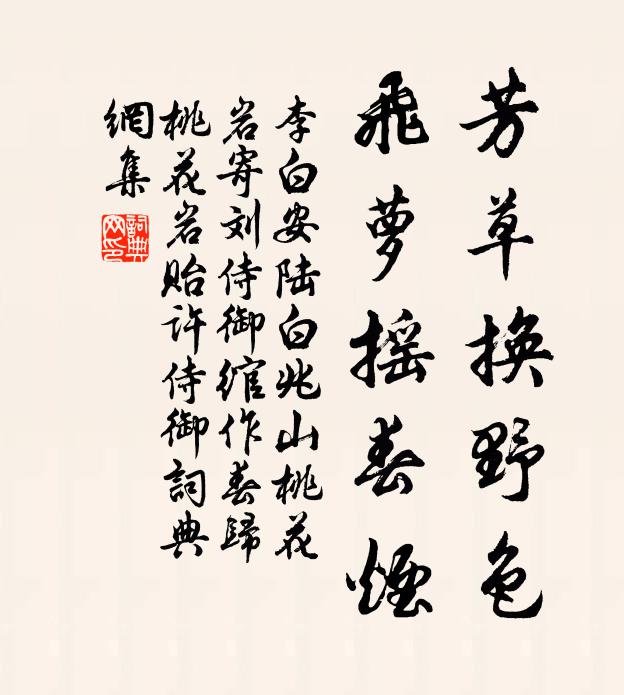 芳草換野色
飛夢摇春煙
李白安陆白兆山桃花
岩寄刘侍御綰作春歸
桃花岩貽许侍御詞典
網集
詞典
网印